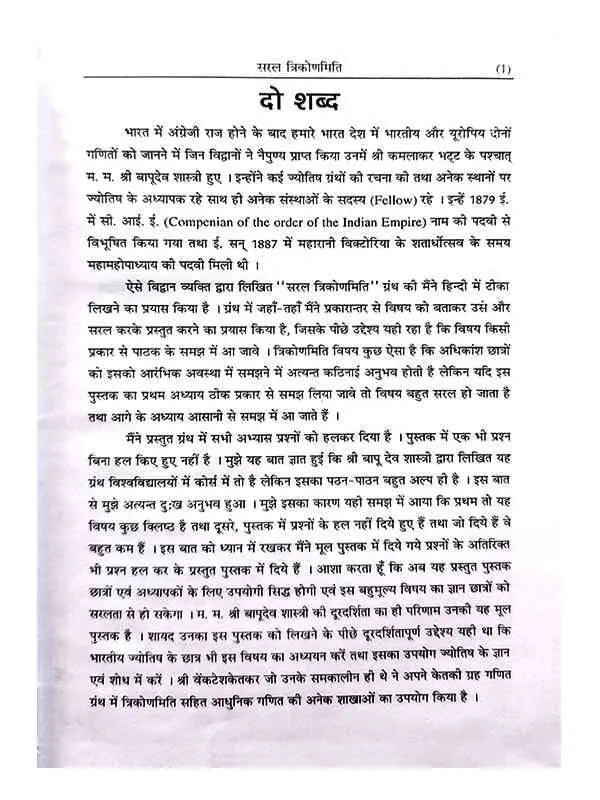 सरल त्रिकोणमिति (1)
दो शब्द
भारत में अंग्रेजी राज होने के बाद हमारे भारत देश में भारतीय और यूरोपिय दोनों
गणितों को जानने में जिन विद्वानों ने नैपुण्य प्राप्त किया उनमें श्री कमलाकर भट्ट के पश्चात्
म. म. श्री बापूदेव शास्त्री हुए । इन्होंने कई ज्योतिष ग्रंथों की रचना की तथा अनेक स्थानों पर
ज्योतिष के अध्यापक रहे साथ ही अनेक संस्थाओं के सदस्य (Fellow) रहे । इन्हें 1879 ई.
में सी. आई. ई. (Compenian of the order of the Indian Empire) नाम की पदवी से
विभूषित किया गया तथा ई. सन् 1887 में महारानी विक्टोरिया के शतार्धोत्सव के समय
महामहोपाध्याय की पदवी मिली थी ।
ऐसे विद्वान व्यक्ति द्वारा लिखित "सरल त्रिकोणमिति" ग्रंथ की मैंने हिन्दी में टीका
लिखने का प्रयास किया है । ग्रंथ में जहाँ-तहाँ मैंने प्रकारान्तर से विषय को बताकर उसे और
सरल करके प्रस्तुत करने का प्रयास किया है, जिसके पीछे उद्देश्य यही रहा है कि विषय किसी
प्रकार से पाठक के समझ में आ जावे । त्रिकोणमिति विषय कुछ ऐसा है कि अधिकांश छात्रों
को इसको आरंभिक अवस्था में समझने में अत्यन्त कठिनाई अनुभव होती है लेकिन यदि इस
पुस्तक का प्रथम अध्याय ठीक प्रकार से समझ लिया जावे तो विषय बहुत सरल हो जाता है
तथा आगे के अध्याय आसानी से समझ में आ जाते हैं ।
मैंने प्रस्तुत ग्रंथ में सभी अभ्यास प्रश्नों को हलकर दिया है । पुस्तक में एक भी प्रश्न
बिना हल किए हुए नहीं है । मुझे यह बात ज्ञात हुई कि श्री बापू देव शास्त्री द्वारा लिखित यह
ग्रंथ विश्वविद्यालयों में कोर्स में तो है लेकिन इसका पठन-पाठन बहुत अल्प ही है । इस बात
से मुझे अत्यन्त दु:ख अनुभव हुआ । मुझे इसका कारण यही समझ में आया कि प्रथम तो यह
विषय कुछ क्लिष्ठ है तथा दूसरे, पुस्तक में प्रश्नों के हल नहीं दिये हुए हैं तथा जो दिये हैं वे
बहुत कम हैं । इस बात को ध्यान में रखकर मैंने मूल पुस्तक में दिये गये प्रश्नों के अतिरिक्त
भी प्रश्न हल कर के प्रस्तुत पुस्तक में दिये हैं । आशा करता हूँ कि अब यह प्रस्तुत पुस्तक
छात्रों एवं अध्यापकों के लिए उपयोगी सिद्ध होगी एवं इस बहुमूल्य विषय का ज्ञान छात्रों को
सरलता से हो सकेगा । म. म. श्री बापूदेव शास्त्री की दूरदर्शिता का ही परिणाम उनकी यह मूल
पुस्तक है । शायद उनका इस पुस्तक को लिखने के पीछे दूरदर्शितापूर्ण उद्देश्य यही था कि
भारतीय ज्योतिष के छात्र भी इस विषय का अध्ययन करें तथा इसका उपयोग ज्योतिष के ज्ञान
एवं शोध में करें । श्री वेंकटेशकेतकर जो उनके समकालीन ही थे ने अपने केतकी ग्रह गणित
ग्रंथ में त्रिकोणमिति सहित आधुनिक गणित की अनेक शाखाओं का उपयोग किया है ।